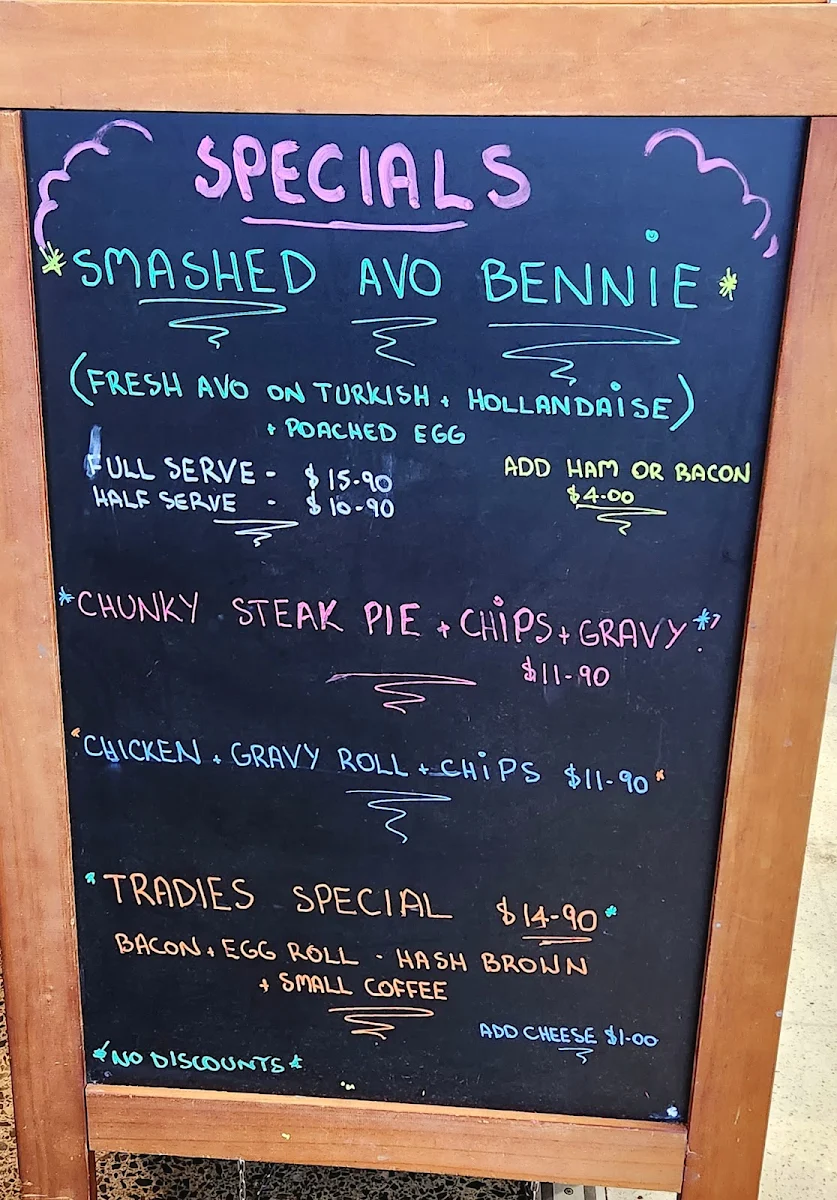 SPECIALS
*SMASHED AVO BENNIE*
(FRESH AVO ON TURKISH + HOLLANDAISE)
+ POACHED EGG
FULL SERVE - $15-90
HALF SERVE - $10-90
ADD HAM OR BACON
$4.00
*CHUNKY STEAK PIE + CHIPS + GRAVY*
$11-90
*CHICKEN + GRAVY ROLL + CHIPS $11-90*
*TRADIES SPECIAL $14-90*
BACON + EGG ROLL - HASH BROWN
+ SMALL COFFEE
ADD CHEESE $1-00
*NO DISCOUNTS*